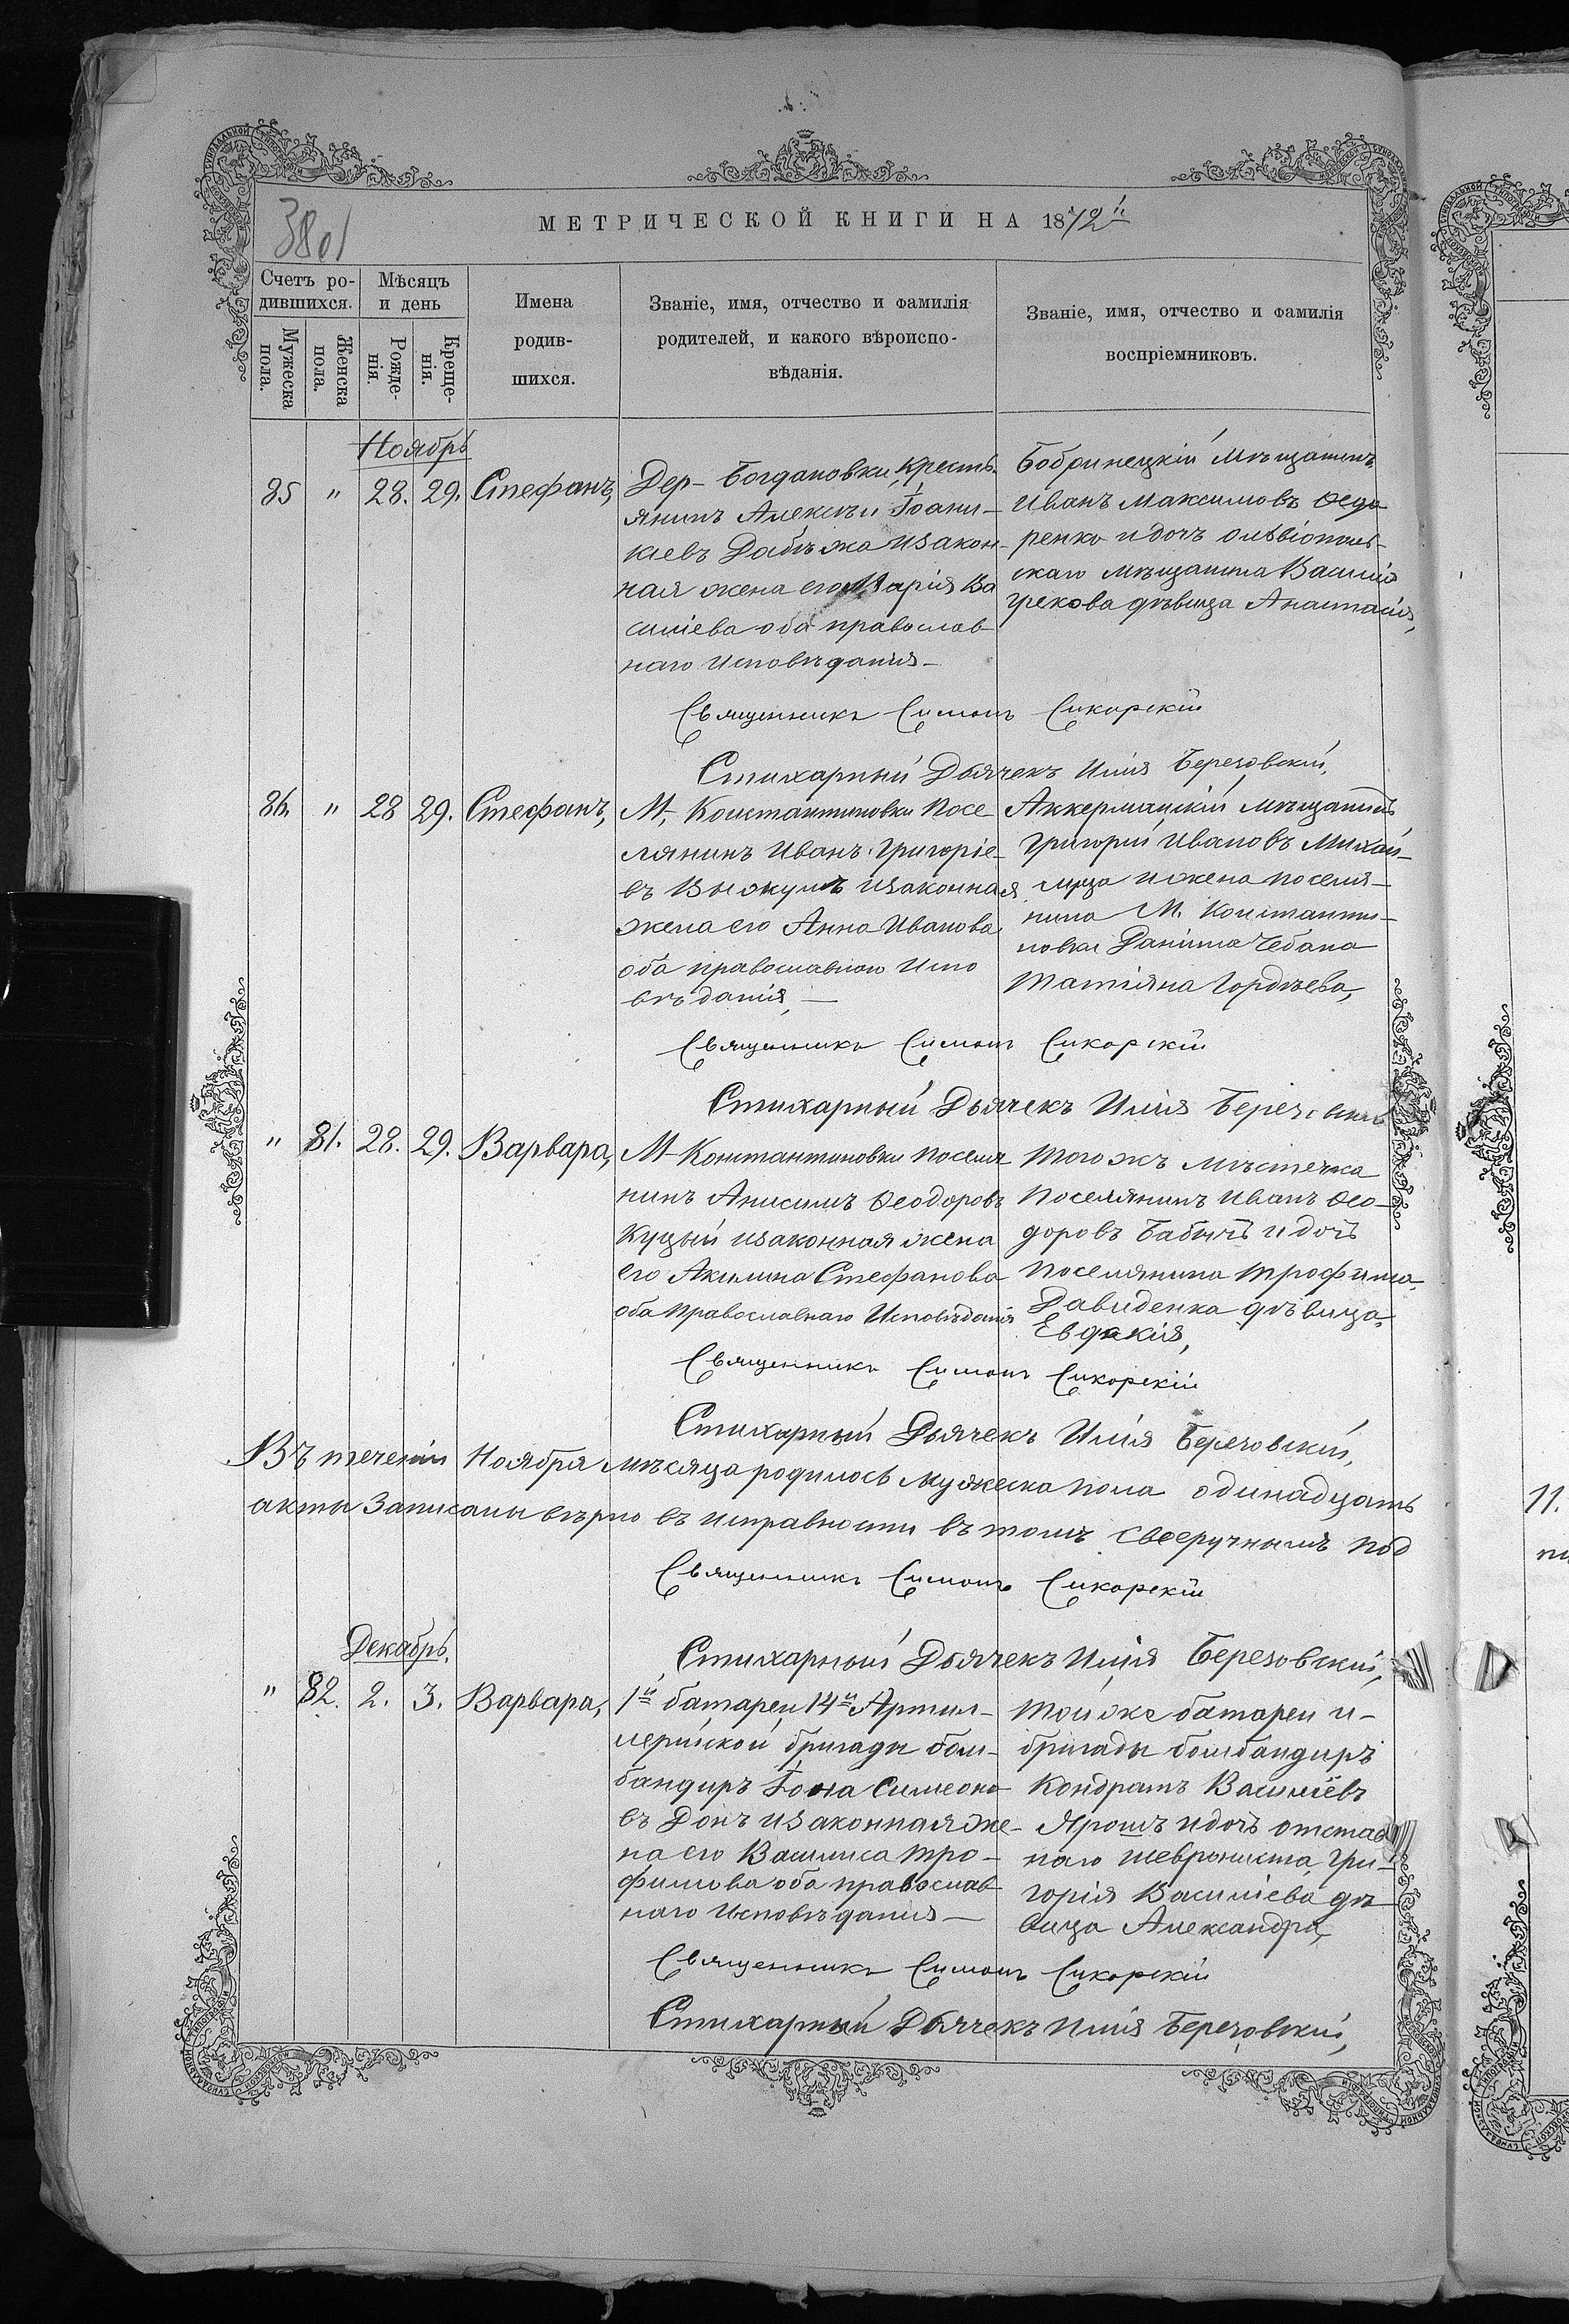 МЕТРИЧЕСКОЙ КНИГИ НА 1872й
Счетъ ро-
дившихся.
Мужеска
пола.
Женска
пола.
Мѣсяцъ
и день
Рожде-
нія.
Креще-
нія.
Имена
родив-
шихся.
Званіе, имя, отчество и фамилія
родителей, и какого вѣроиспо-
вѣданія.
Званіе, имя, отчество и фамилія
воспріемниковъ.
Ноябрь
85 " 28. 29. Стефанъ,
Дер- Богдановки, Кресть-
янинъ Алексѣй Іоани-
кіевъ Дабѣжа изакон-
ная жена его Марія Ва
силіева оба православ
наго исповѣданія-
Бобринецкій Мѣщанинъ
Иванъ Максимовъ Ѳедо
ренко и дочь ольвіополь-
скаго мѣщанина Василія
Грекова дѣвица Анастасія,
Священникъ Симонъ Сикорскій
Стихарный Дьячекъ Илія Березовскій,
86. " 28 29. Стефанъ,
М. Константиновки Посе
лянинъ Иванъ Григоріе-
въ изаконная
жена его Анна Иванова
оба православнаго Испо
вѣданія, —
Аккерманскій мѣщанинъ
Григорій Ивановъ Михай-
луца и жена поселя-
нина М. Константи-
новки Даніила Чебана
Татіяна Гордѣева,
Священникъ Симонъ Сикорскій
Стихарный Дьячекъ Илія Березовскій
" 81. 28. 29. Варвара,
М Константиновки поселя
нинъ Анисимъ Ѳеодоровъ
Куцый изаконная жена
его Акилина Стефанова
оба Православнаго Исповѣданія
Того жъ мѣстечка
Поселянинъ Иванъ Ѳео-
доровъ Бабичъ и дочь
поселянина Трофима
Давиденка дѣвица
Евдокія,
Священникъ Симонъ Сикорскій
Стихарный Дьячекъ Илія Березовскій,
Въ теченіи Ноября мѣсяца родилось мужеска пола одинадцать
акты Записаны вѣрно въ исправности въ томъ своеручнымъ под
Священникъ Симонъ Сикорскій
Декабрь.
Стихарный Дьячекъ Илія Березовскій,
" 82. 2. 3. Варвара,
1й батареи 14й Артил-
лерійской бригады бом-
бандиръ Іона Симеоно-
въ Донъ изаконная же-
на его Василиса Тро-
фимова оба православ
наго исповѣданія —
Той же батареи и-
бригады бомбандиръ
Кондратъ Василіевъ
Ярошъ и дочь отстав
наго шеврониста Гри-
горія Василіева дѣ
вица Александра,
Священникъ Симонъ Сикорскій
Стихарный Дьячекъ Илія Березовскій,
11.